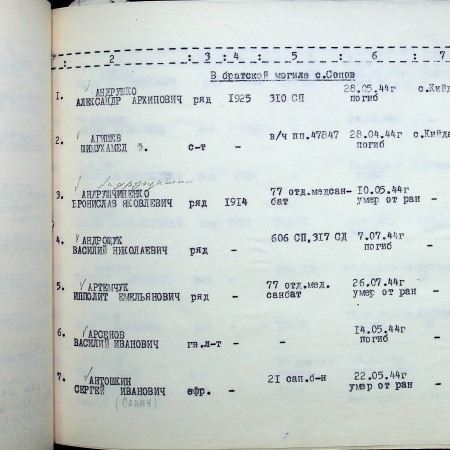 : 2 : 3 : 4 : 5 : 6 : 7
В братской могиле с.Сопов
1. АНДРУШКО 28.05.44г с.Кийд
АЛЕКСАНДР АРХИПОВИЧ ряд 1925 310 СП погиб
2. АГИШЕВ в/ч пп.47847 28.04.44г с.Кийда
ШИМУХАМЕД с-т - погиб
3. АНДРУШЧИНЕНКО 77 отд.медсан- 10.05.44г
БРОНИСЛАВ ЯКОВЛЕВИЧ ряд 1914 бат умер от ран -
4. АНДРОЩУК 606 СП,317 СД 7.07.44г
ВАСИЛИЙ НИКОЛАЕВИЧ ряд - погиб -
5. АРТЕМЧУК 77 отд.мед. 26.07.44г
ИППОЛИТ ЕМЕЛЬЯНОВИЧ ряд - санбат умер от ран -
6. АРСЕНОВ 14.05.44г
ВАСИЛИЙ ИВАНОВИЧ гв.л-т - - погиб -
7. АНТОШКИН 21 сап.б-н 22.05.44г
СЕРГЕЙ ИВАНОВИЧ ефр. - умер от ран -